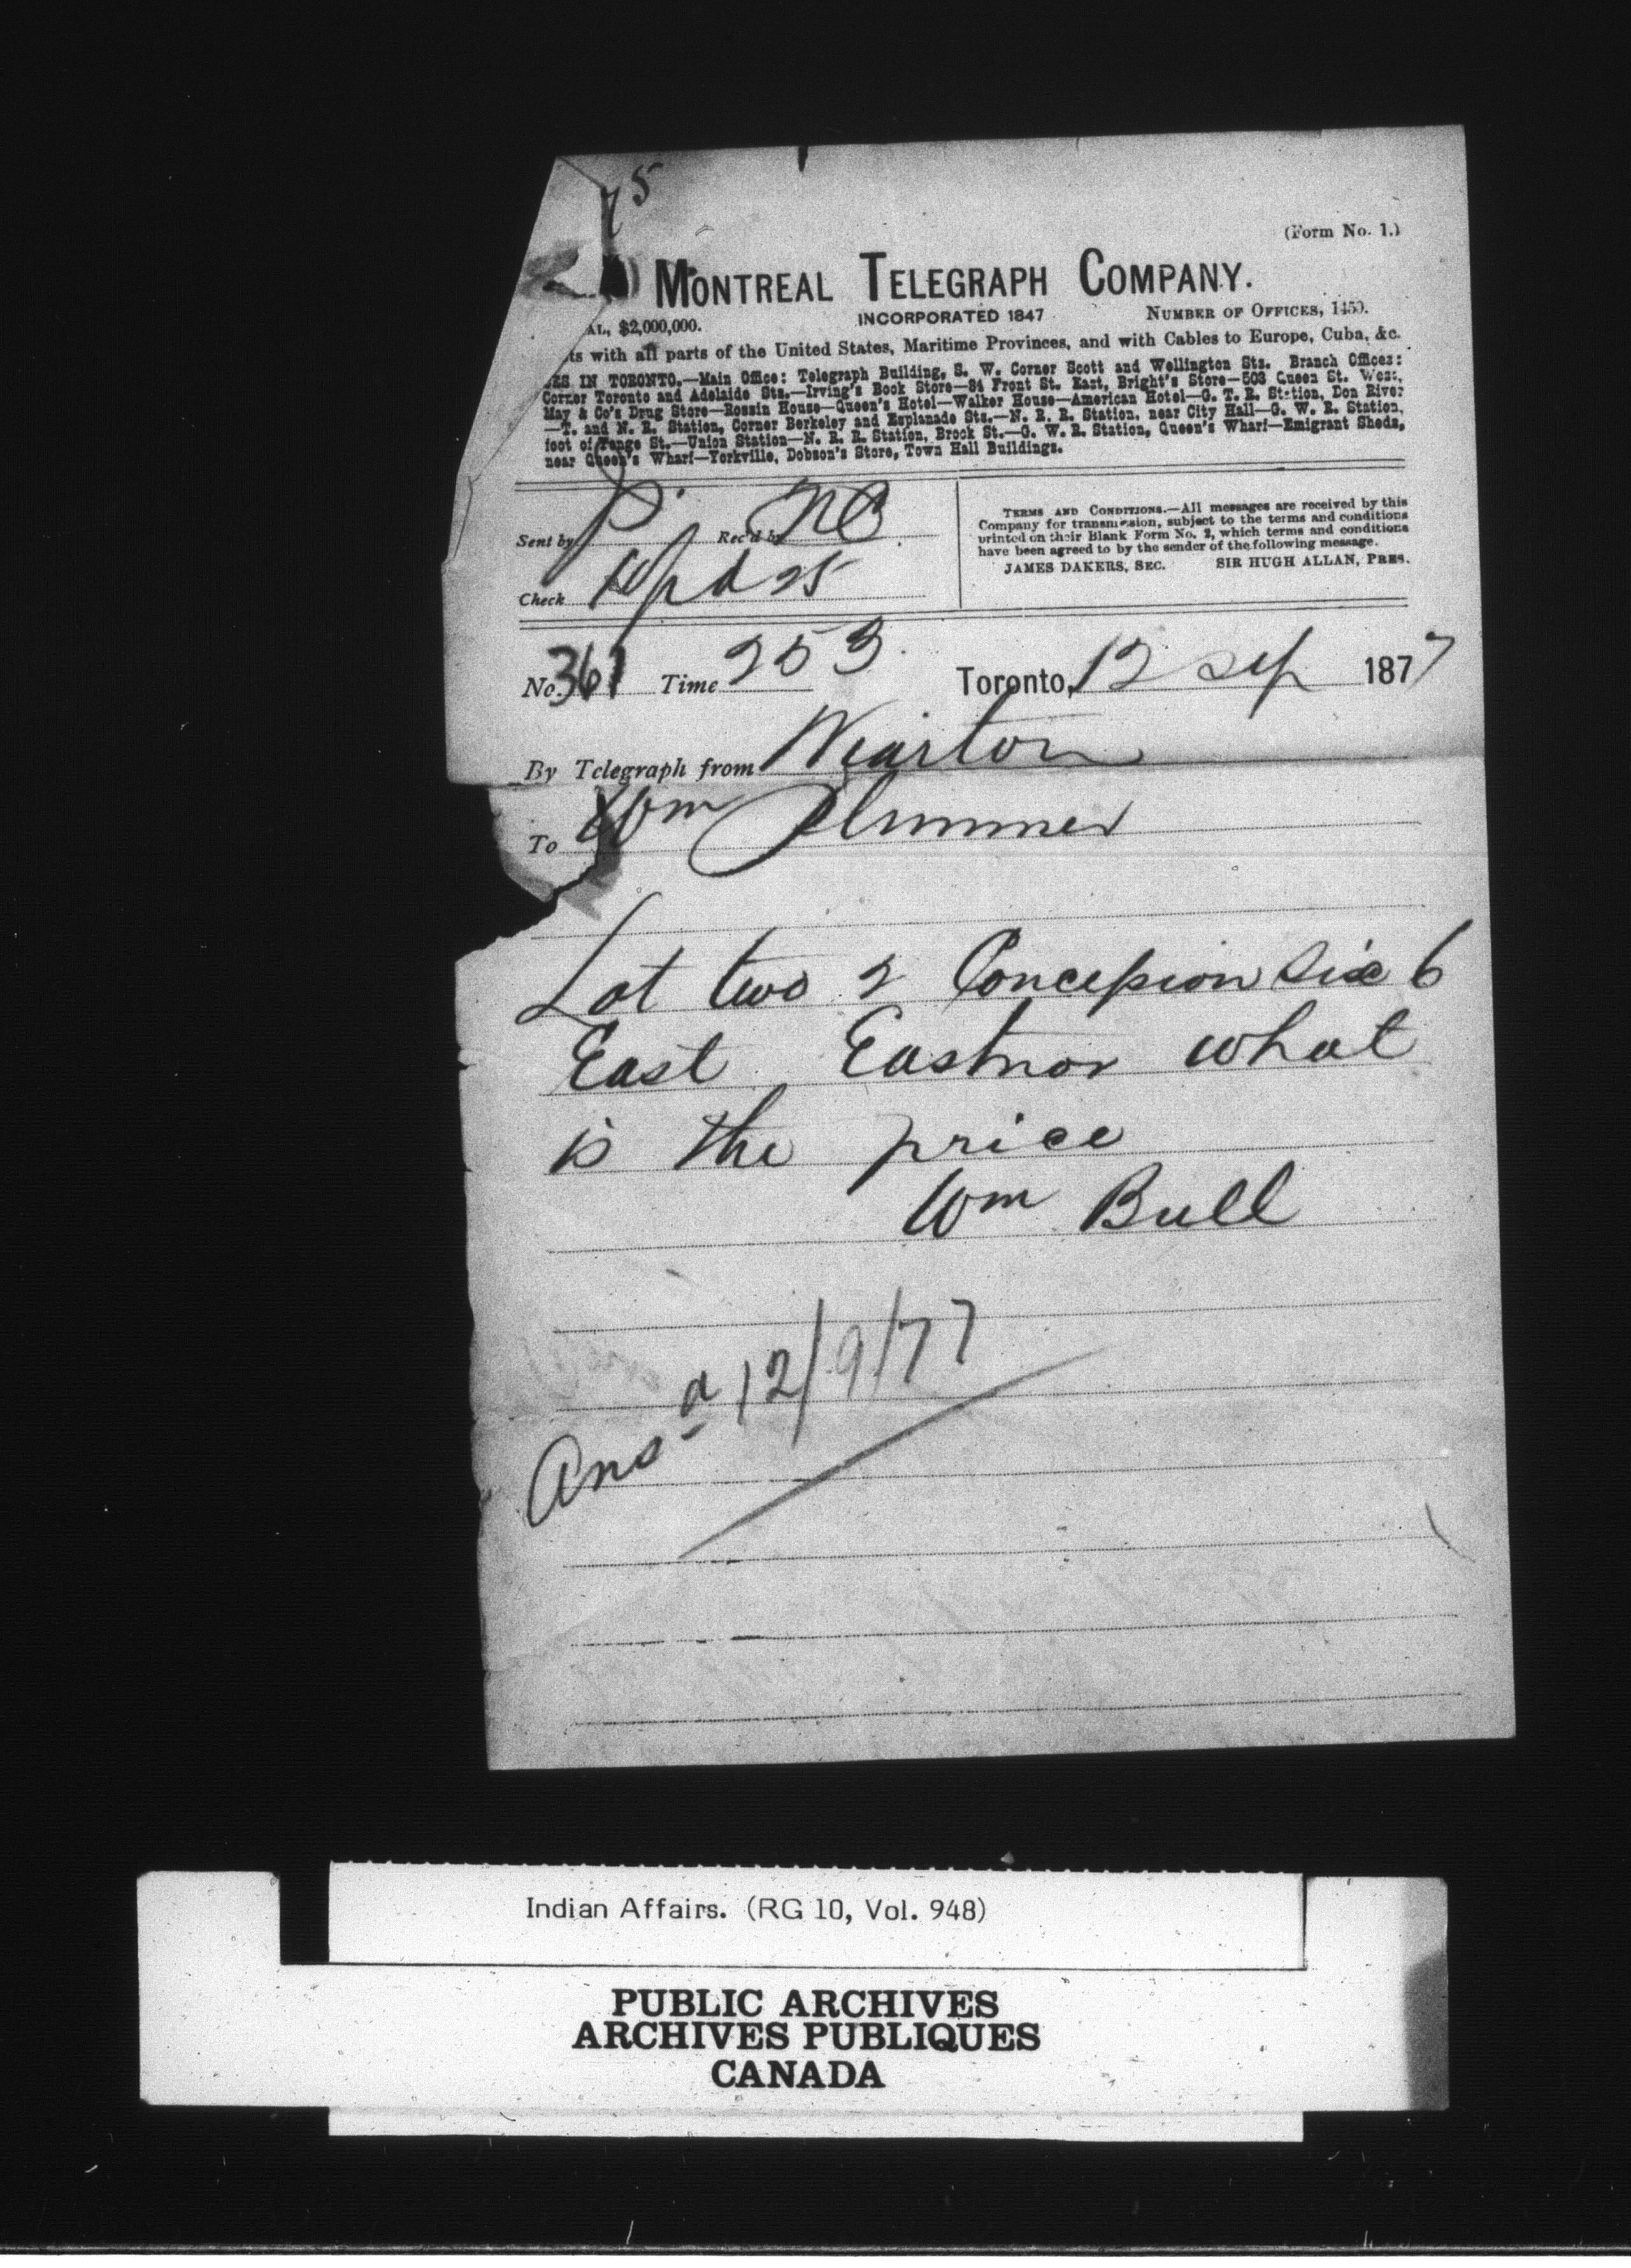 75
(Form No. 1.)
MONTREAL TELEGRAPH COMPANY.
AL, $2,000,000. INCORPORATED 1847 NUMBER OF OFFICES, 1450.
ts with all parts of the United States, Maritime Provinces, and with Cables to Europe, Cuba, &c.
ES IN TORONTO.—Main Office: Telegraph Building, S. W. Corner Scott and Wellington Sts. Branch Offices:
Corner Toronto and Adelaide Sts.—Irving's Book Store—84 Front St. East, Bright's Store—503 Queen St. West,
May & Co's Drug Store—Rossin House—Queen's Hotel—Walker House—American Hotel—G. T. R. Station, Don River
—T. and N. R. Station, Corner Berkeley and Esplanade Sts.—N. R. R. Station, near City Hall—G. W. R. Station,
foot of Yonge St.—Union Station—N. R. R. Station, Brock St.—G. W. R. Station, Queen's Wharf—Emigrant Sheds,
near Queen's Wharf—Yorkville, Dobson's Store, Town Hall Buildings.
Sent by P. Rec'd by
Check 10 pd 25
TERMS AND CONDITIONS.—All messages are received by this
Company for transmission, subject to the terms and conditions
printed on their Blank Form No. 2, which terms and conditions
have been agreed to by the sender of the following message.
JAMES DAKERS, SEC. SIR HUGH ALLAN, PRES.
No. 361 Time 253 Toronto, 12 Sep 1877
By Telegraph from Wiarton
To Wm Plummer
Lot two 2 Concession Six 6
East Eastnor what
is the price
Wm Bull
Ansd 12/9/77
Indian Affairs. (RG 10, Vol. 948)
PUBLIC ARCHIVES
ARCHIVES PUBLIQUES
CANADA